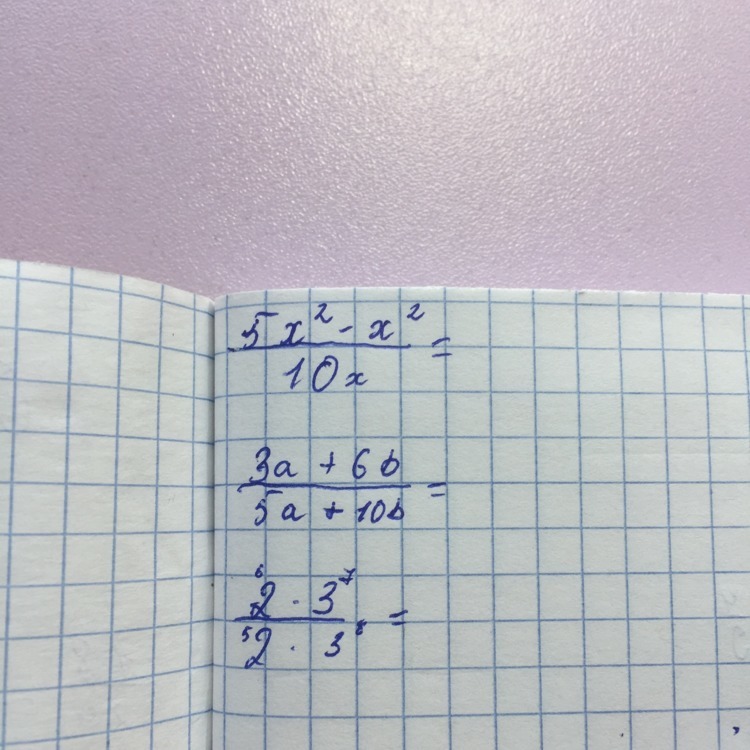 5x² - x² =
10x
3a + 6b =
5a + 10b
⁶2 · 3⁷ =
⁵2 · 3